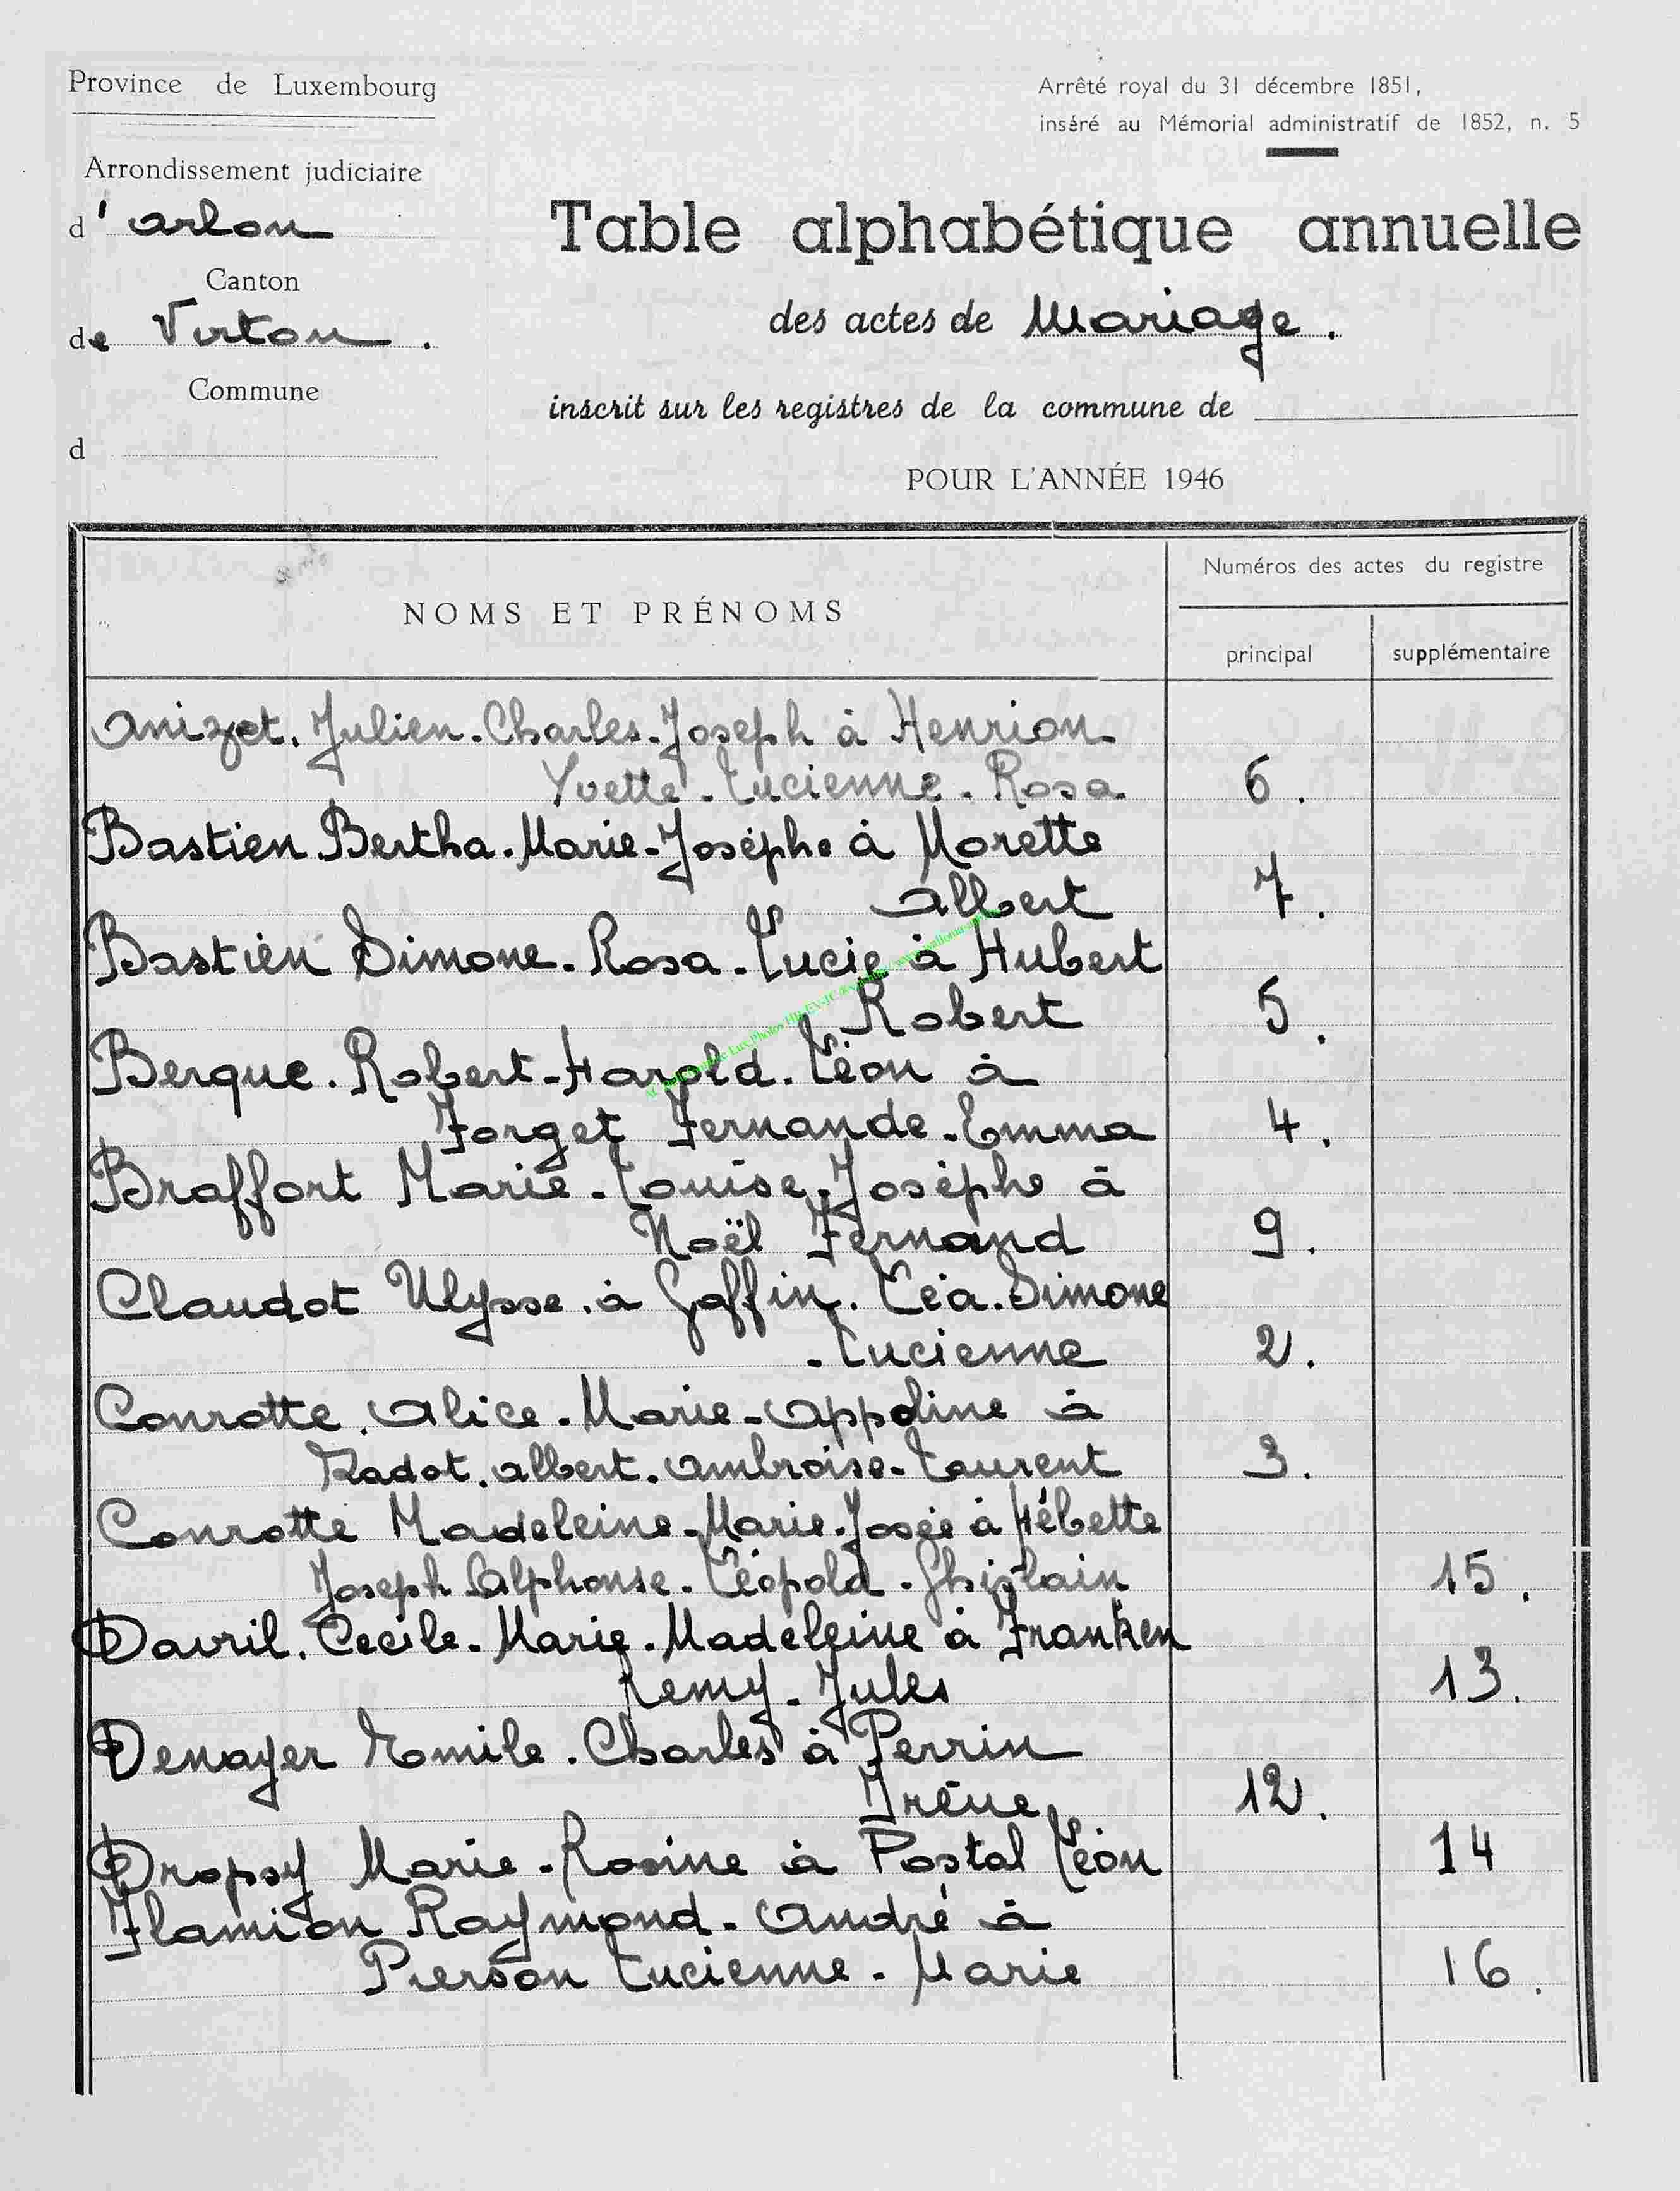 Province de Luxembourg
Arrêté royal du 31 décembre 1851,
inséré au Mémorial administratif de 1852, n. 5
Arrondissement judiciaire
d'Arlon
Canton
de Virton.
Commune
d
Table alphabétique annuelle
des actes de Mariage.
inscrit sur les registres de la commune de
POUR L'ANNÉE 1946
NOMS ET PRÉNOMS
Numéros des actes du registre
principal supplémentaire
Anizet. Julien-Charles-Joseph à Henrion
Yvette-Lucienne-Rosa 6.
Bastien Bertha-Marie-Josèphe à Morette
Albert 7.
Bastien Simone-Rosa-Lucie à Hubert
Robert 5.
Berque. Robert-Harold. Léon à
Forget Fernande-Emma 4.
Braffort Marie-Louise-Josèphe à
Noël Fernand 9.
Claudot Ulysse à Goffin. Léa. Simone
-Lucienne 2.
Conrotte. Alice-Marie-Appoline à
Albert. Ambroise-Laurent 3.
Conrotte Madeleine-Marie-Josée à Hébette
Joseph Alphonse-Léopold-Ghislain 15.
Davril. Cecile-Marie-Madeleine à Franken
Remy-Jules 13.
Denayer Emile. Charles à Perrin
Irène 12.
Dropsy Marie-Rosine à Postal Léon 14
Flamion Raymond-André à
Pierson Lucienne-Marie 16.